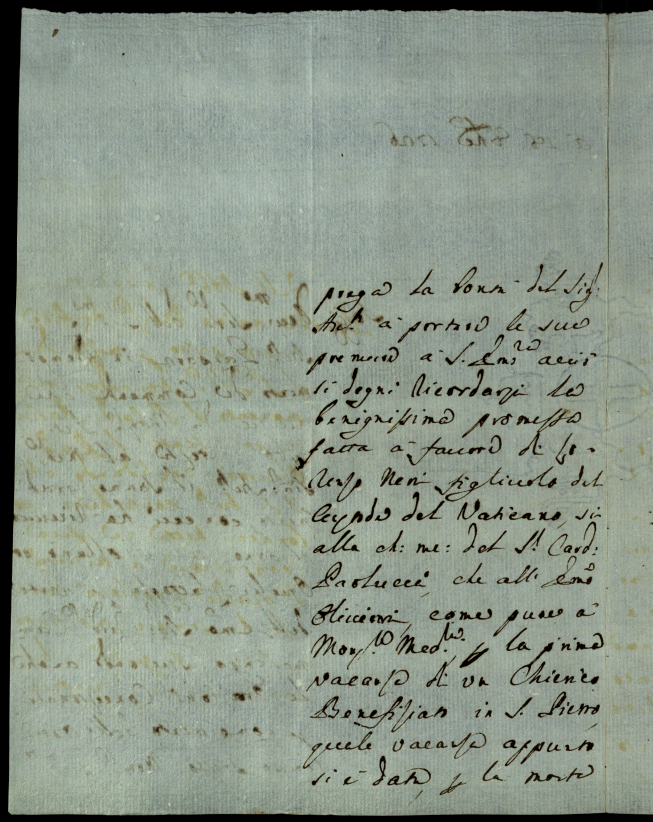 prega la bontà del Sig.
Ant.º à portare le sue
premure à S. Em.za acciò
si degni ricordarsi la
benignissima promessa
fatta à favore di Lo-
renzo Neri figliuolo del
del Vaticano, sì
alla ch: me: del S.r Card:
Paolucci, che all' Emo
Olivieri, come pure à
Mons.re Med.mo, p la prima
vacanza di un Chierico
Benefiziato in S. Pietro,
quale vacanza appunto
si è data, p la morte